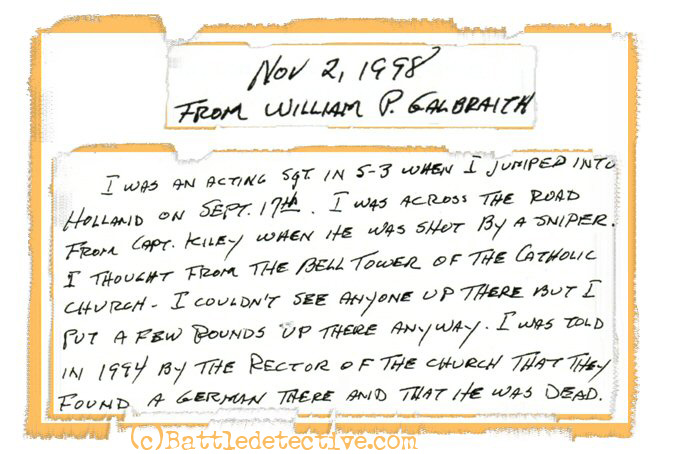 Nov 2, 1998
FROM WILLIAM P. GALBRAITH
I WAS AN ACTING SGT IN S-3 WHEN I JUMPED INTO
HOLLAND ON SEPT. 17th. I WAS ACROSS THE ROAD
FROM CAPT. KILEY WHEN HE WAS SHOT BY A SNIPER.
I THOUGHT FROM THE BELL TOWER OF THE CATHOLIC
CHURCH - I COULDN'T SEE ANYONE UP THERE BUT I
PUT A FEW ROUNDS UP THERE ANYWAY. I WAS TOLD
IN 1994 BY THE RECTOR OF THE CHURCH THAT THEY
FOUND A GERMAN THERE AND THAT HE WAS DEAD.
(c)Battledetective.com